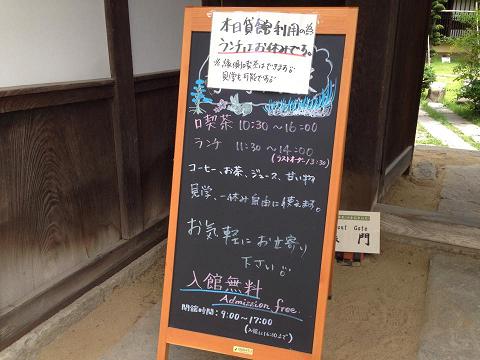 本日貸館利用の為
ランチはお休みです。
※縁側喫茶はできます。
見学も可能です。
喫茶 10:30〜16:00
ランチ 11:30〜14:00
(ラストオーダー13:30)
コーヒー、お茶、ジュース、甘い物
見学、一休み自由に使えます。
お気軽にお立寄り
下さい。
入館無料
Admission free
開館時間:9:00〜17:00
(入館は16:30まで)
Gate
門